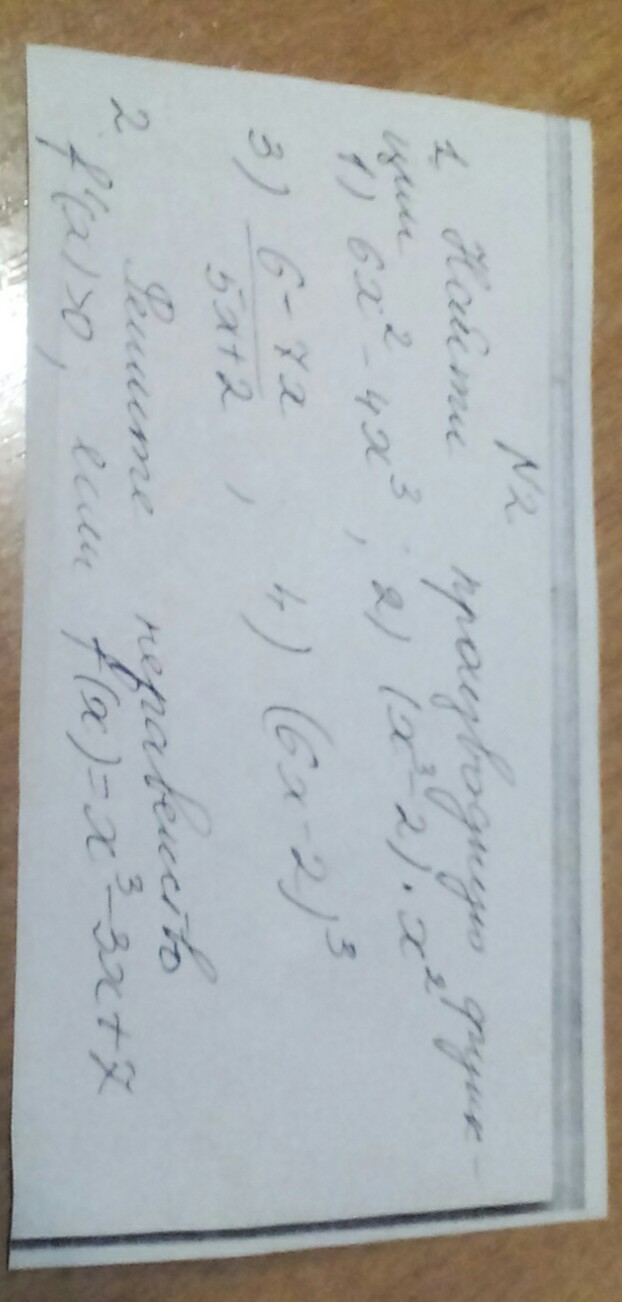 N2
1. Найти производную функ-
ции
1) 6x² - 4x³ ; 2) (x³ - 2) · x²
3) (6 - 7x)/(5x + 2) , 4) (6x - 2)³
2. Решите неравенство
f'(x) > 0, если f(x) = x³ - 3x + 7